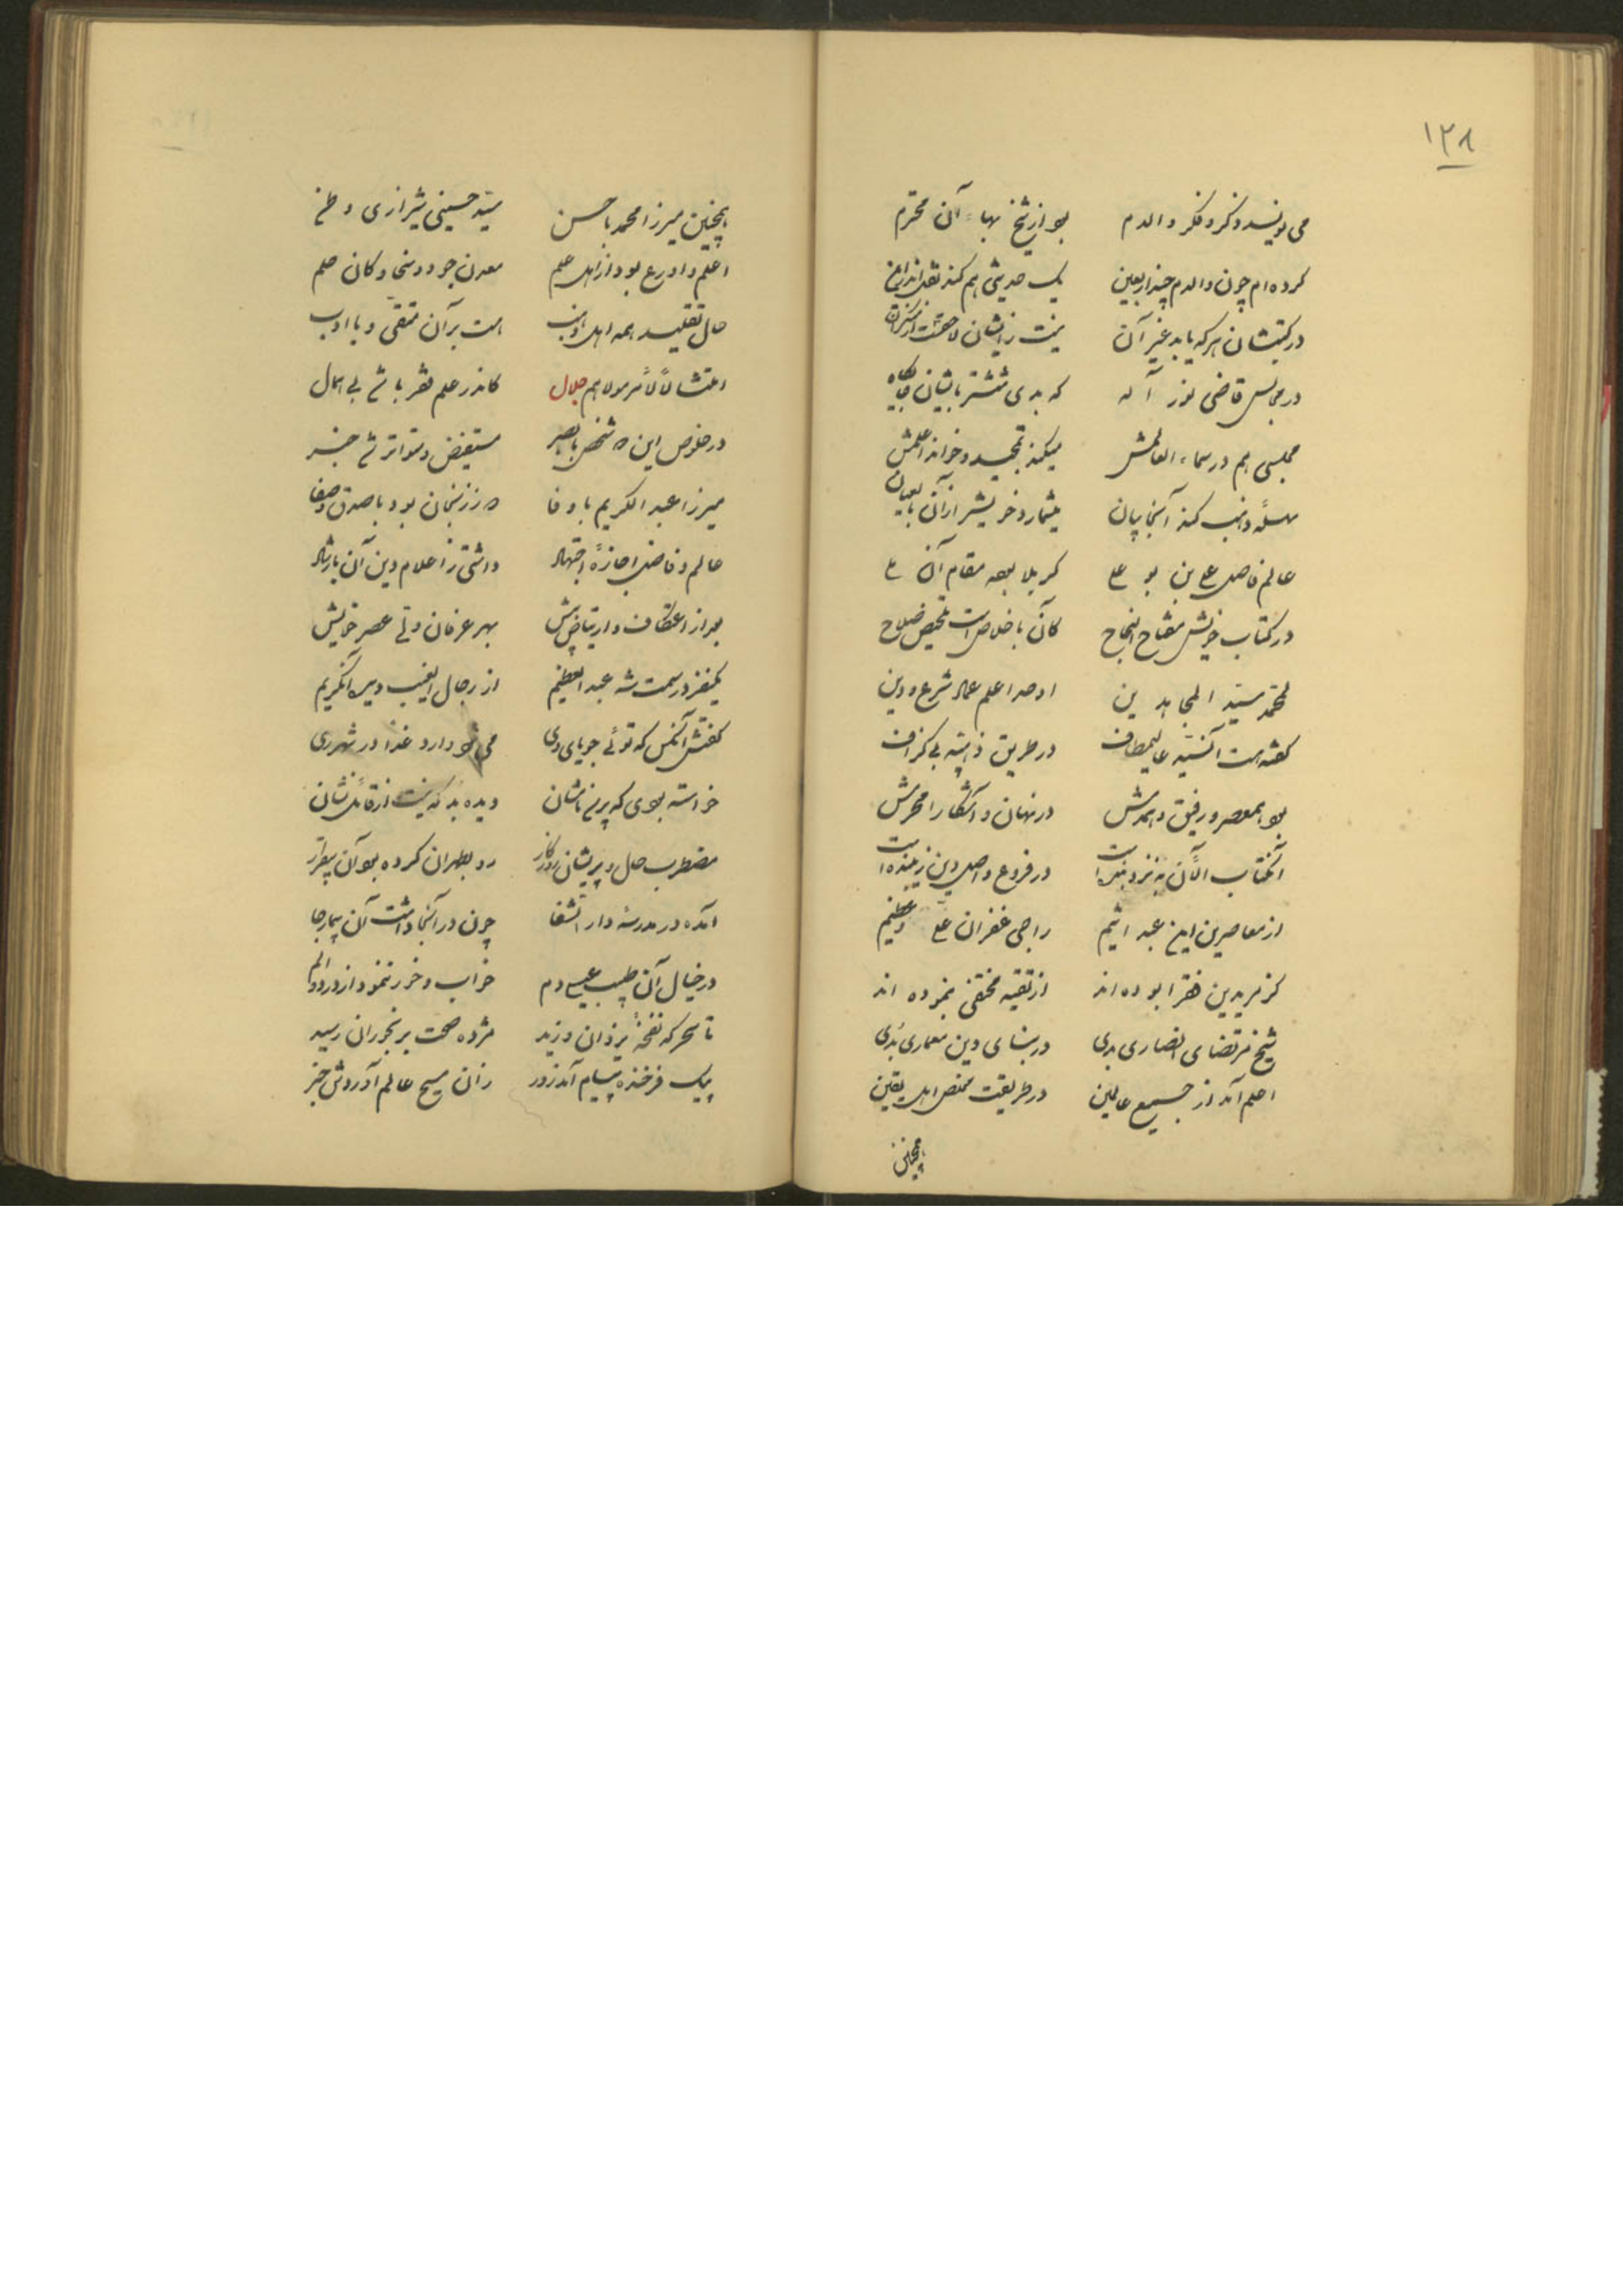 ۱۲۸
می نویسد ذکر و فکر والدم بود از شیخ بهاء آن محترم
کرده ام چون والدم چند اربعین یک حدیثی هم کند نقل اندرین
در کتبشان هر که یابد غیر آن نیست زایشان
در مجالس قاضی نور اله که بدی ششتر بایشان جایگاه
مجلسی هم در سماء العالمش میکند تمجید و خواند اعلمش
مسئله و ذهب کند آنجا بیان میشمارد خویش را از آن
عالم فاضل علی بن بو علی کربلا بوده مقام آن
در کتاب خویش مفتاح النجاح کان باخلاص است
محمد سید المجاهدین اوحد اعلم عماد شرع و دین
گفته است آنسید عالیمطاف در طریق ذهبیه بی گزاف
بود همعصر و رفیق و همدمش در نهان و آشکارا محرمش
آنکتاب الآن به نزد بنده است در فروع و اصل دین زیبنده است
از معاصرین این عبد اثیم راجی غفران علی و عظیم
کز مریدین فقرا بوده اند از تقیه مختفی بنموده اند
شیخ مرتضای انصاری بدی در بنای دین معماری بدی
اعلم آمد از جمیع عالمین در طریقت مخلص اهل یقین
همچنین
همچنین میرزا محمد با حسن سید حسینی شیرازی وطن
اعلم و اورع بود از اهل علم معدن جود و سخا و کان حلم
حال تقلید همه اهل ذهب هست بر آن متقی و با ادب
امتثالاً لأمر مولاهم جلال کاندر علم فقر باشی بی همال
در خلوص این ۵ شخص با بصر مستفیض و متواتر شد خبر
میرزا عبد الکریم با وفا ۵ ز زنجان بود با صدق و صفا
عالم و فاضل اجازهٔ اجتهاد داشتی ز اعلام دین آن با رشاد
بعد از اعتکاف و ارتیاض بیش بهر عرفان ولی عصر خویش
یکنفر در سمت شه عبد العظیم از رجال الغیب دید آنکریم
گفتش آنکس که توئی جویای وی می شود وارد غداً در شهر ری
خواسته بودی که پرسی نامشان دیده بد که نیست از قائل نشان
مضطرب حال و پریشان روزگار رو بطهران کرده بود آن بیقرار
آمده در مدرسه دار الشفا چون در آنجا داشت آن بیمار جا
در خیال آن طبیب عیسی دم خواب و خور ننمود از درد و الم
تا سحر که نفخهٔ یزدان وزید مژده صحت برنجوران رسید
پیک فرخنده پیام آمد ز در زان مسیح عالم آوردش خبر